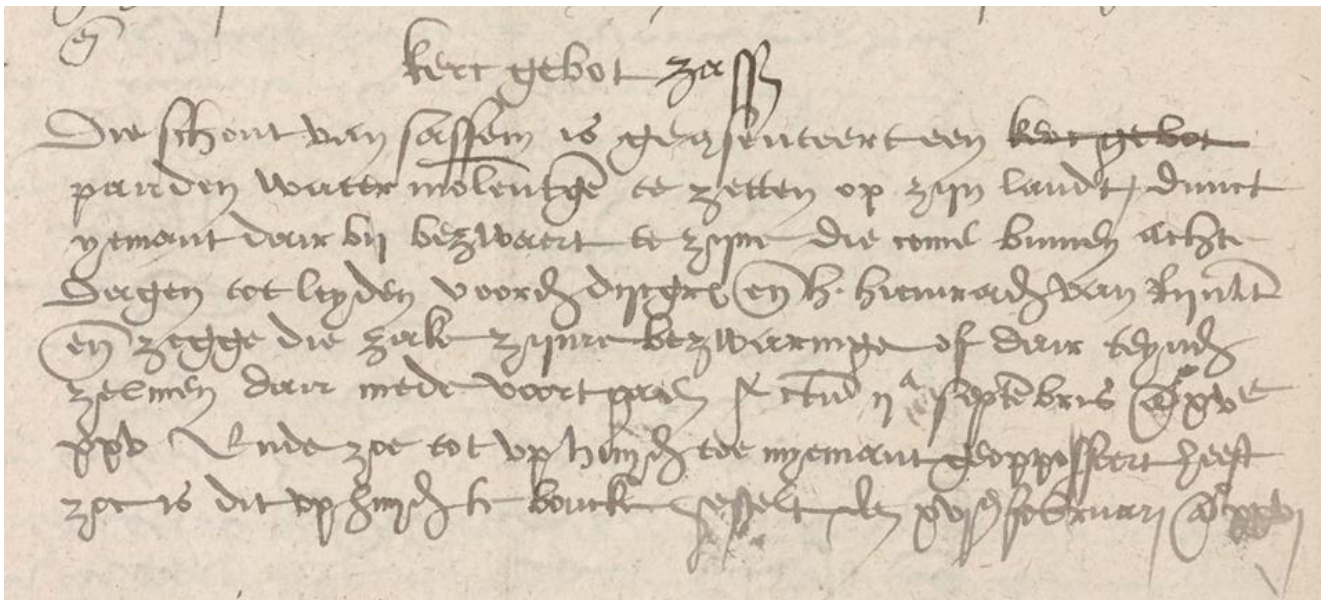 en
kerc gebot zass
Die schout van sassem is geconsenteert een kerc gebot
parden water molentge te zetten op zijn landt, dunct
yemant dair bij bezwaert te zijne die come binnen achte
dagen tot leyden voor dijcgr en h. hiemraden van Rijnlt
en zegge die zake zijnre bezwaringe of dair teynden
zelmen dair mede voort gaen actum ii a septembris a° xv c
xxv Ende zoe tot op huyden toe nyemant geopposeert heeft
zoe is dit op huyden te boucke gestelt den februarij a°